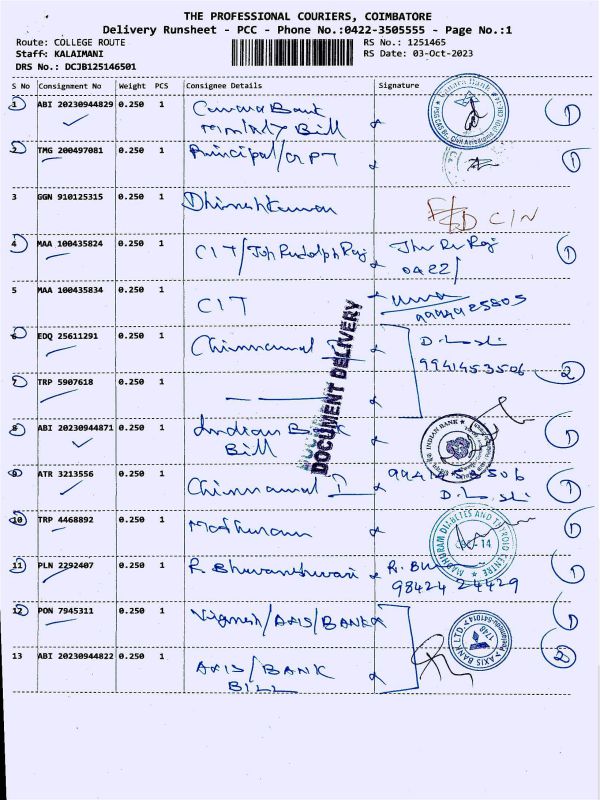 THE PROFESSIONAL COURIERS, COIMBATORE
Delivery Runsheet - PCC - Phone No.:0422-3505555 - Page No.:1
Route: COLLEGE ROUTE
RS No.: 1251465
Staff: KALAIMANI
RS Date: 03-Oct-2023
DRS No.: DCJB125146501
S No Consignment No Weight PCS Consignee Details Signature
1 ABI 20230944829 0.250 1 Canara Bank
Monthly Bill
Canara Bank
2 TMG 200497081 0.250 1 Principal/CIPT
3 GGN 910125315 0.250 1 Dhineshkumar
CIN
4 MAA 100435824 0.250 1 CIT/Joh Rudolph Raj
0422/
5 MAA 100435834 0.250 1 CIT
9994925805
6 EDQ 25611291 0.250 1 Chinnamal
9941453506 2
7 TRP 5907618 0.250 1
DOCUMENT DELIVERY
8 ABI 20230944871 0.250 1 Indian Bank
Bill
INDIAN BANK
9 ATR 3213556 0.250 1 Chinnamal I 9941453506
10 TRP 4468892 0.250 1 Madhuram
MADHURAM DIABETES AND THYROID CENTRE
- 14
11 PLN 2292407 0.250 1 R. Bhuvaneshwari R. Bhu
98424 24429
12 PON 7945311 0.250 1 Vignesh/AXIS/BANK
AXIS BANK LTD.
1748
13 ABI 20230944822 0.250 1 AXIS/BANK
BILL
2